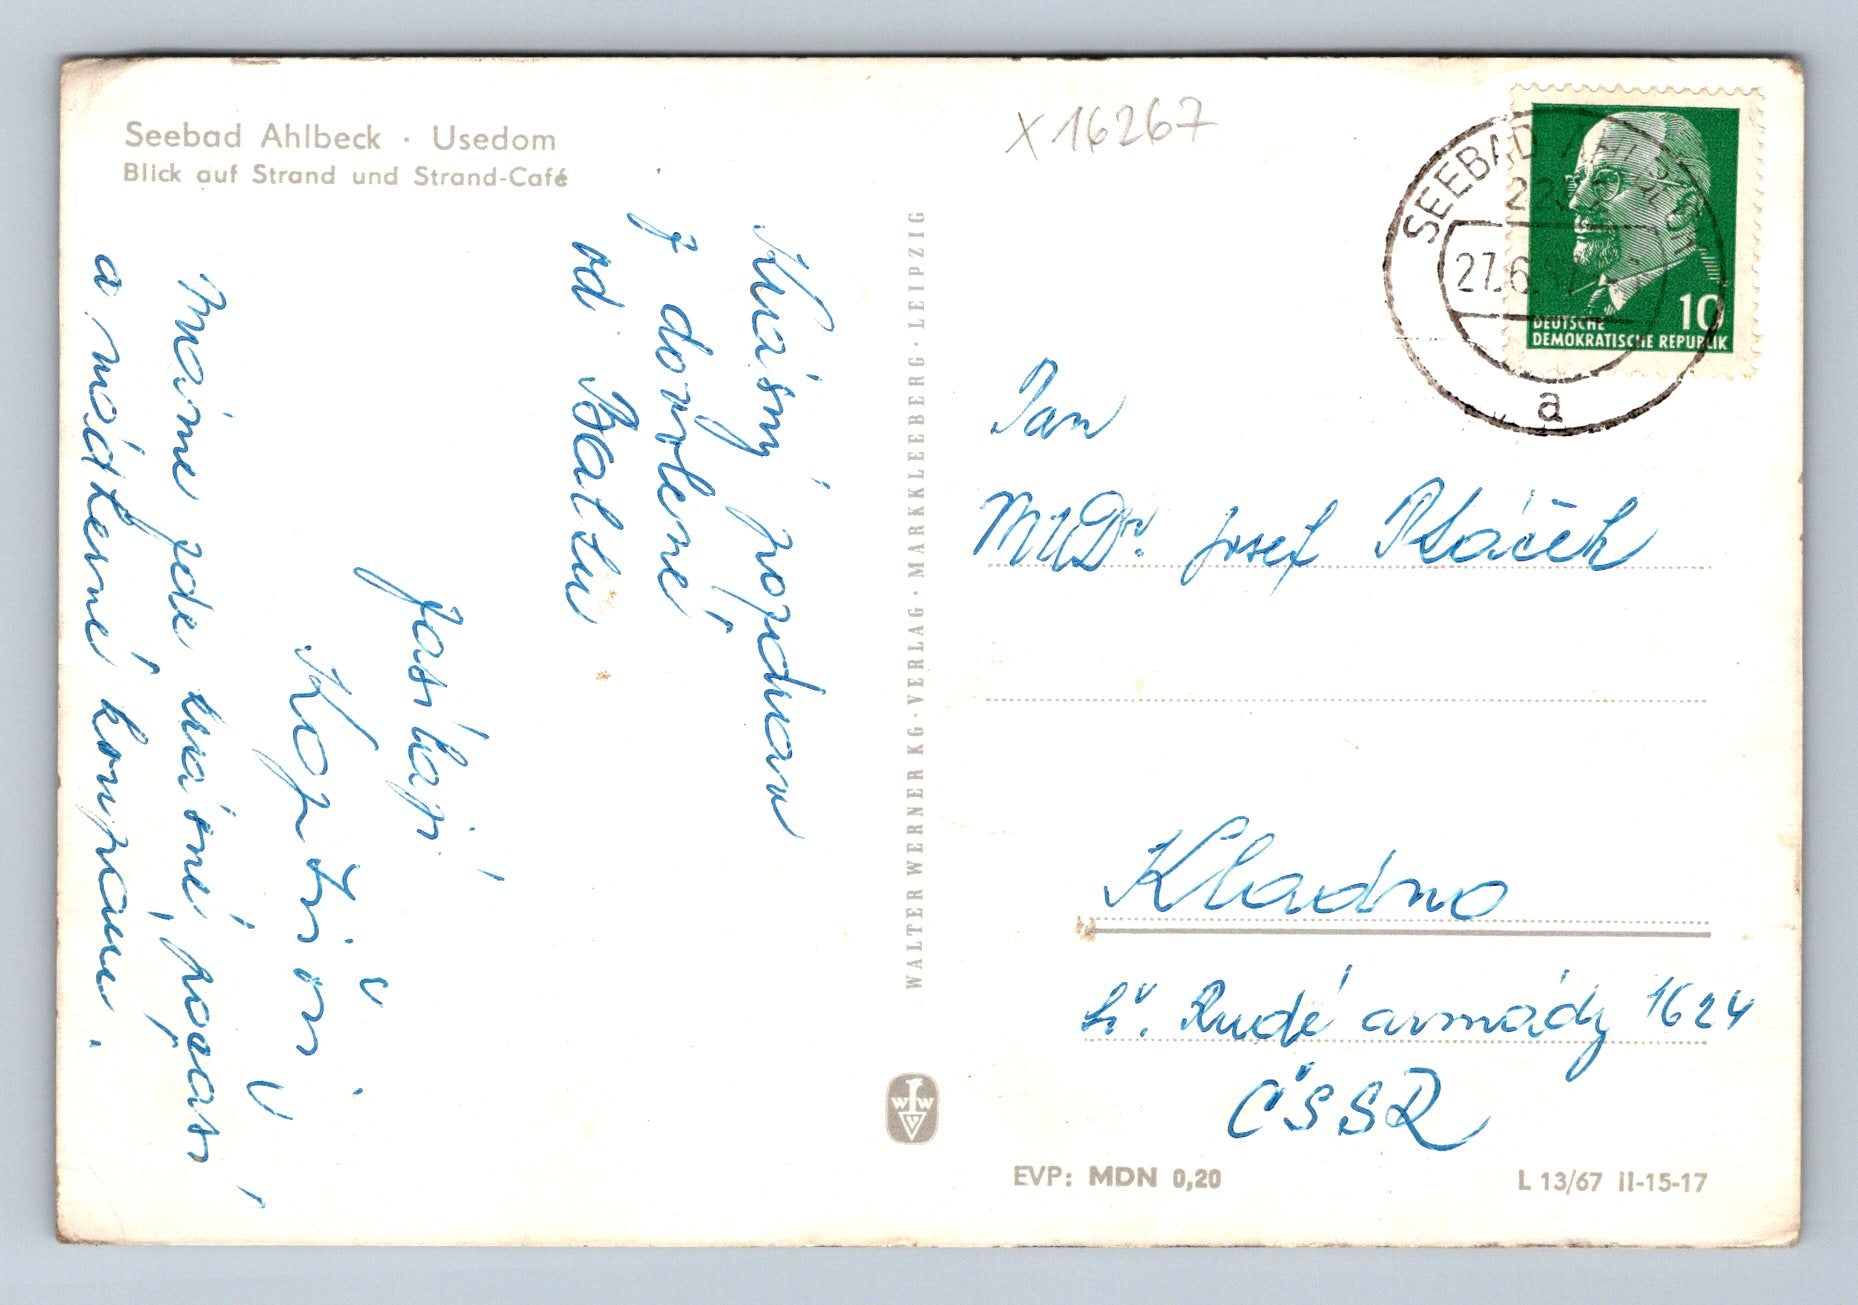 Seebad Ahlbeck · Usedom
Blick auf Strand und Strand-Café
Krásný pozdrav
z dovolené
od Baltu
posílají
Máme zde krásné počasí
a nádherné koupání.
WALTER WERNER KG · VERLAG · MARKKLEEBERG · LEIPZIG
WWV
X16267
SEEBAD AHLBECK
27.6.67
a
10
DEUTSCHE
DEMOKRATISCHE REPUBLIK
Pan
MUDr. Josef Ptáček
Kladno
tř. Rudé armády 1624
ČSSR
EVP: MDN 0,20
L 13/67 II-15-17